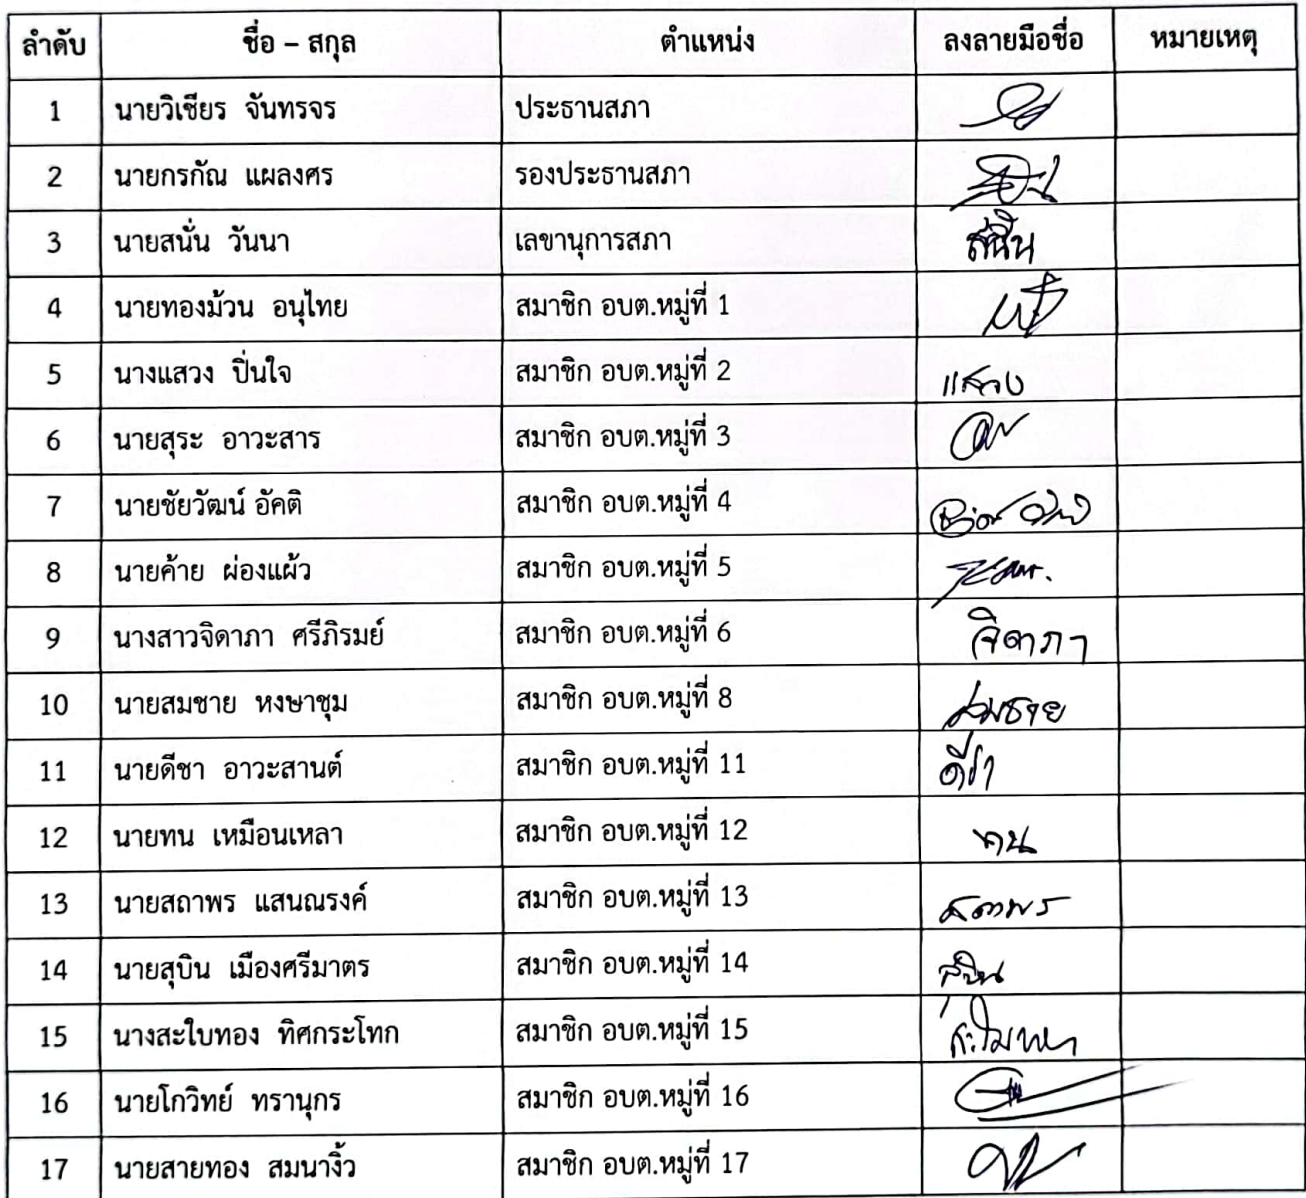 ลำดับ ชื่อ – สกุล ตำแหน่ง ลงลายมือชื่อ หมายเหตุ
1 นายวิเชียร จันทรจร ประธานสภา
2 นายกรกัณ แผลงศร รองประธานสภา
3 นายสนั่น วันนา เลขานุการสภา สนั่น
4 นายทองม้วน อนุไทย สมาชิก อบต.หมู่ที่ 1
5 นางแสวง ปิ่นใจ สมาชิก อบต.หมู่ที่ 2 แสวง
6 นายสุระ อาวะสาร สมาชิก อบต.หมู่ที่ 3
7 นายชัยวัฒน์ อัคติ สมาชิก อบต.หมู่ที่ 4
8 นายค้าย ผ่องแผ้ว สมาชิก อบต.หมู่ที่ 5
9 นางสาวจิดาภา ศรีภิรมย์ สมาชิก อบต.หมู่ที่ 6 จิดาภา
10 นายสมชาย หงษาชุม สมาชิก อบต.หมู่ที่ 8 สมชาย
11 นายดีชา อาวะสานต์ สมาชิก อบต.หมู่ที่ 11 ดีชา
12 นายทน เหมือนเหลา สมาชิก อบต.หมู่ที่ 12 ทน
13 นายสถาพร แสนณรงค์ สมาชิก อบต.หมู่ที่ 13 สถาพร
14 นายสุบิน เมืองศรีมาตร สมาชิก อบต.หมู่ที่ 14 สุบิน
15 นางสะใบทอง ทิศกระโทก สมาชิก อบต.หมู่ที่ 15
16 นายโกวิทย์ ทรานุกร สมาชิก อบต.หมู่ที่ 16
17 นายสายทอง สมนางิ้ว สมาชิก อบต.หมู่ที่ 17